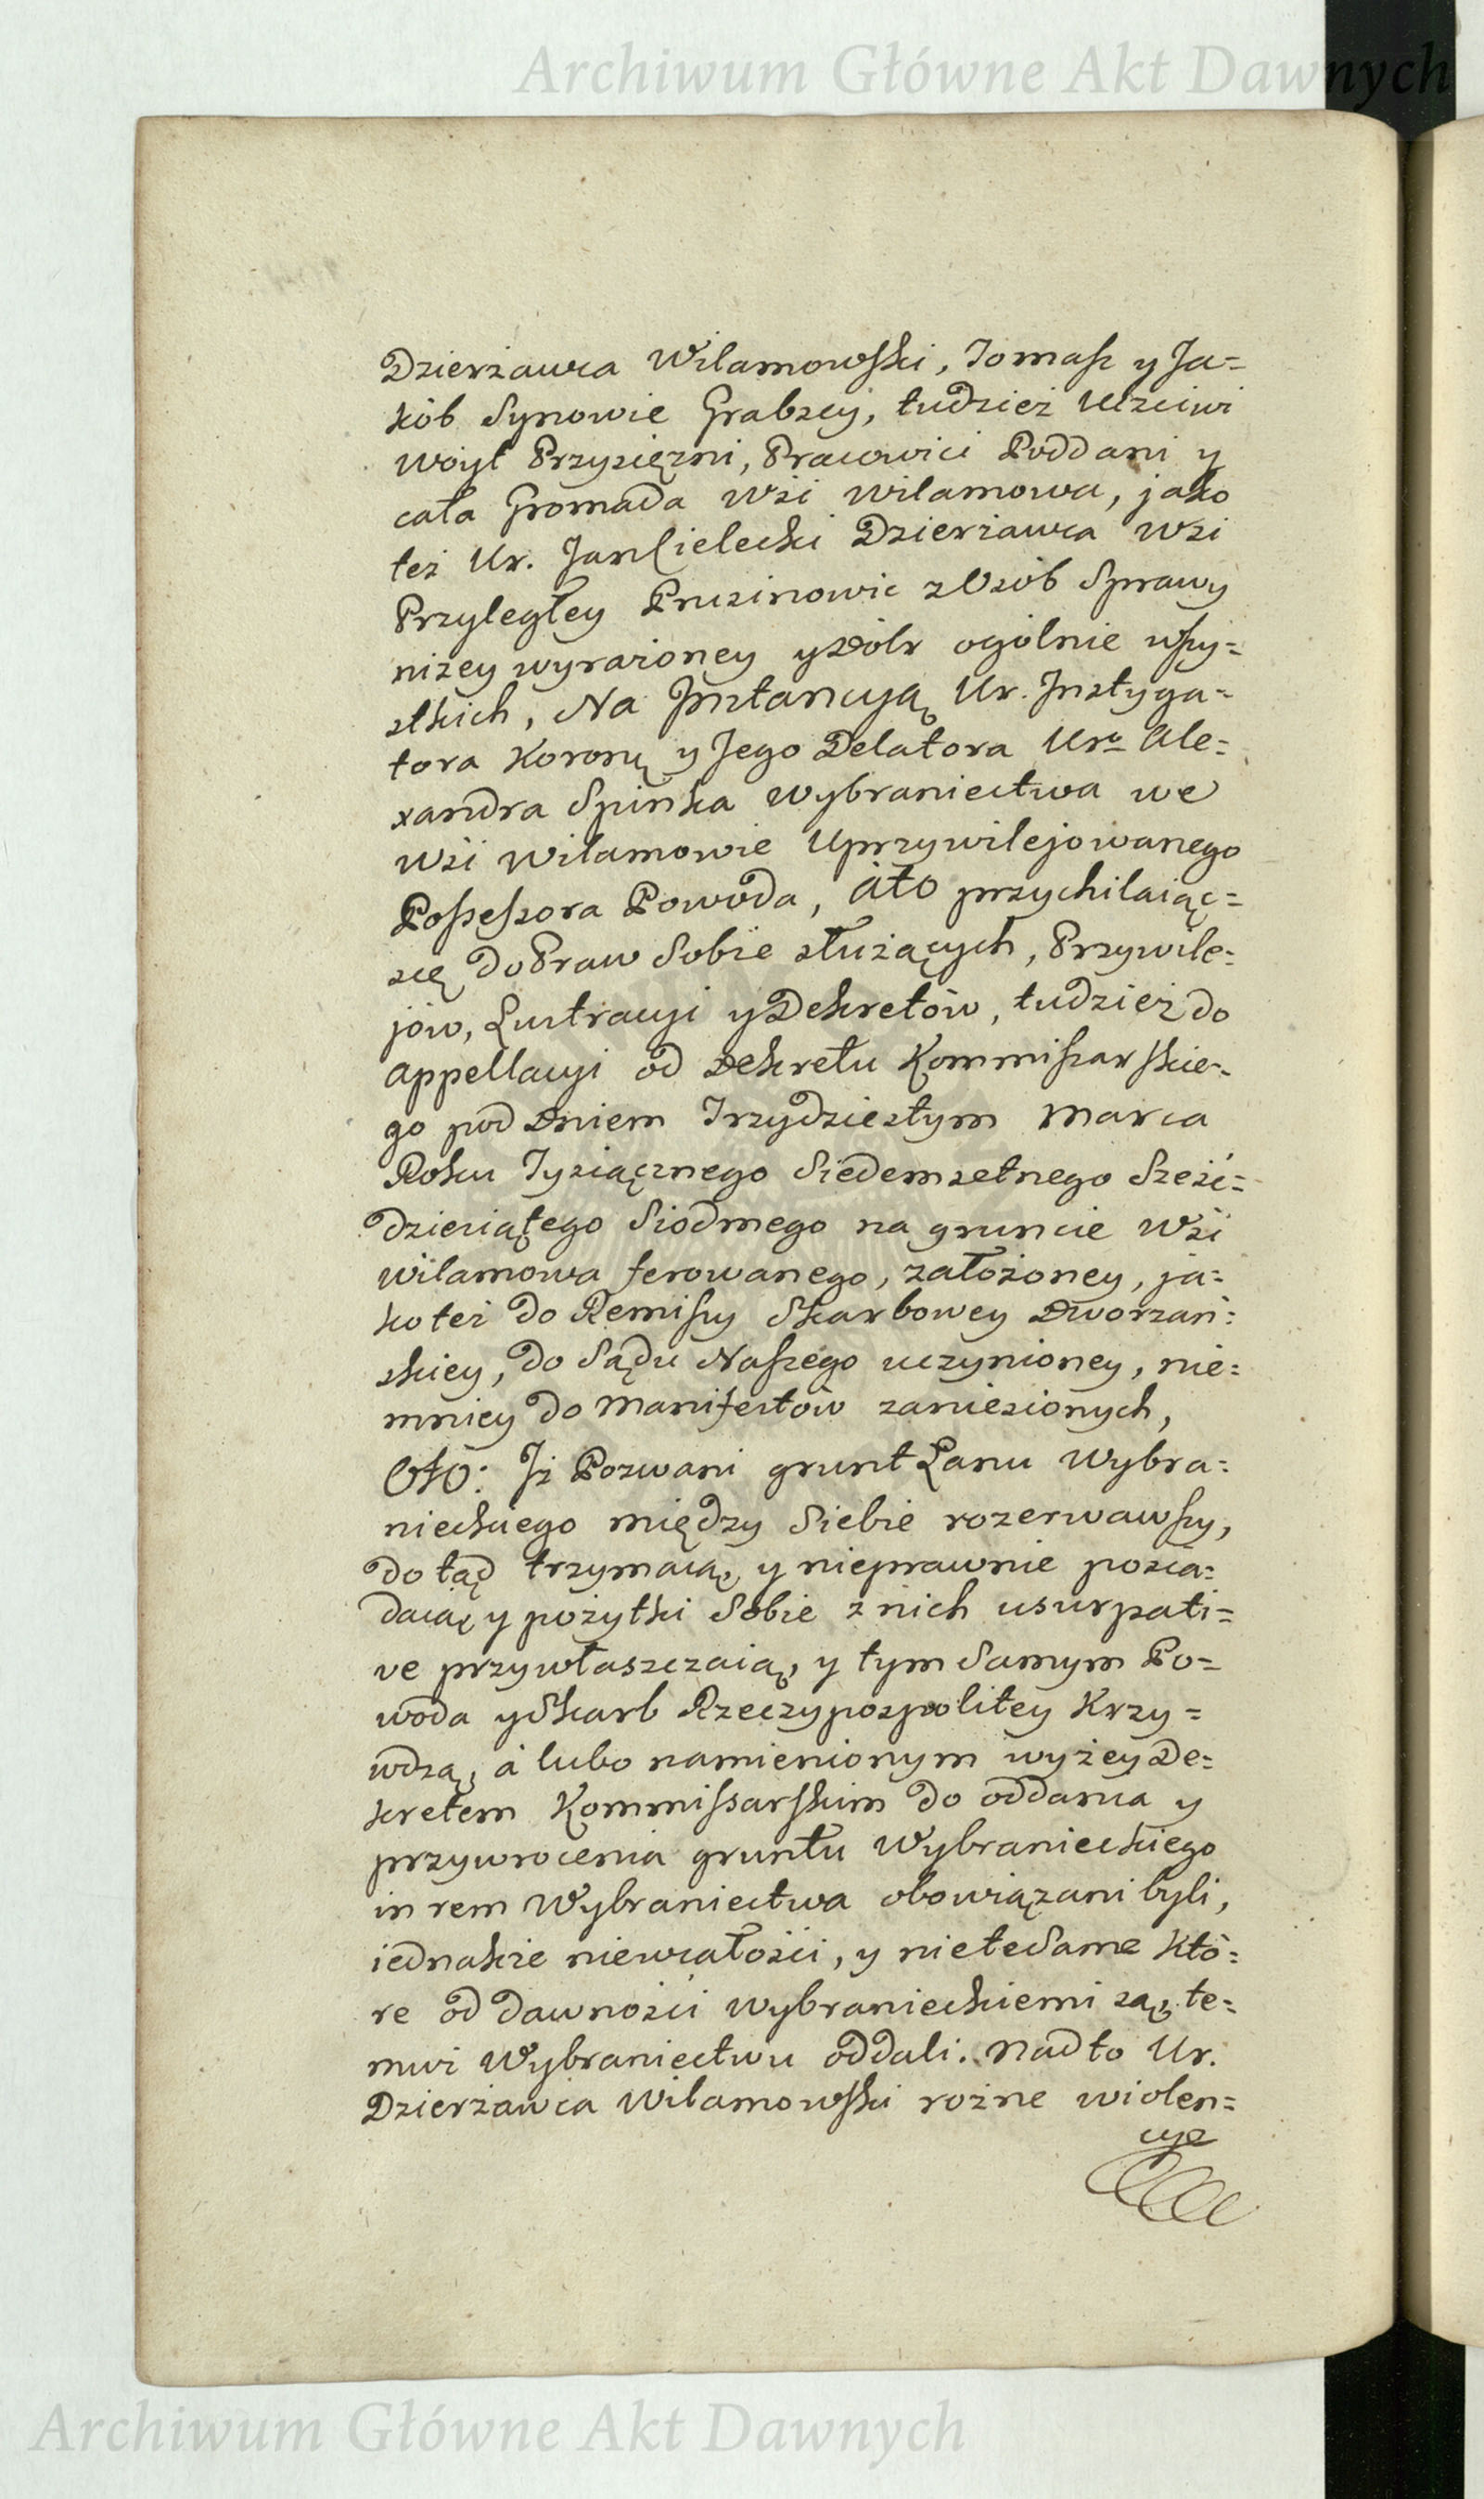 Archiwum Główne Akt Dawnych
Dzierzawca Wilamowski, Tomasz y Ja=
kób Synowie Grabscy, tudzież Uczciwi
Woyt Przysiężni, Pracowici Poddani y
cała Gromada Wsi Wilamowa, jako
też Ur. Jan Cielecki Dzierżawca Wsi
Przyległey Prusinowic z Osób Sprawy
niżey wyrażoney y Dóbr ogólnie wszy=
stkich, Na Instancyą Ur. Instyga=
tora Korony y Jego Delatora Uro Ale=
xandra Spinka Wybraniectwa we
Wsi Wilamowie Uprzywilejowanego
Possessora Powoda, áto przychilaiąc=
się do Praw Sobie służących, Przywile=
jów, Lustracyi y Dekretów, tudzież do
Appellacyi od Dekretu Kommissarskie=
go pod Dniem Trzydziestym Marca
Roku Tysiącznego Siedemsetnego Sześć=
dziesiątego Siodmego na gruncie Wsi
Wilamowa ferowanego, założoney, ja=
ko też do Remissy Skarbowey Dworzań=
skiey, do Sądu Naszego uczynioney, nie=
mniey do Manifestów zaniesionych,
Oto: Iż Pozwani grunt Łanu Wybra=
nieckiego między Siebie rozerwawszy,
do tąd trzymaią, y nieprawnie posia=
daią y pożytki Sobie z nich usurpati=
ve przywłaszczaią, y tym Samym Po=
woda y Skarb Rzeczypospolitey Krzy=
wdzą, á lubo namienionym wyżey De=
kretem Kommissarskim do oddania y
przywrocenia gruntu Wybranieckiego
in rem Wybraniectwa obowiązani byli,
iednakże niewcałości, y nie te Same Któ=
re od dawności Wybranieckiemi są, te=
muż Wybraniectwu oddali. Nadto Ur.
Dzierżawca Wilamowski rożne wiolen=
cye
Archiwum Główne Akt Dawnych